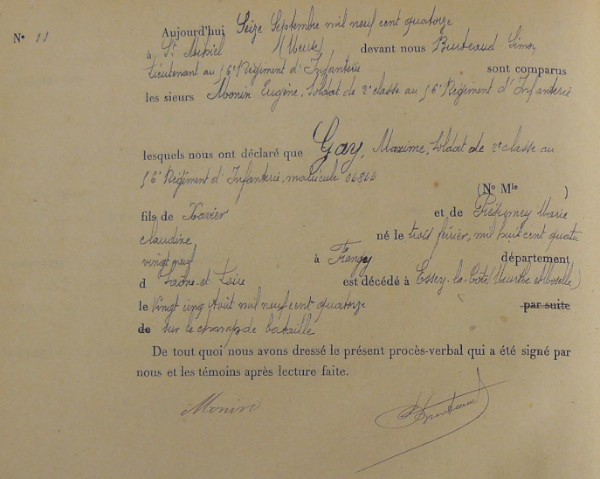 N° 11
Aujourd'hui Seize Septembre mil neuf cent quatorze
à St Mihiel (Meuse) devant nous Simon
Lieutenant au 56e Régiment d'Infanterie sont comparus
les sieurs Monin Eugène, Soldat de 2e classe au 56e Régiment d'Infanterie
lesquels nous ont déclaré que Gay, Maxime, Soldat de 2e classe au
56e Régiment d'Infanterie, matricule 04866
(N° Mle )
fils de Xavier et de Marie
claudine né le trois février, mil huit cent quatre
vingt neuf à Frangy département
d Saône-et-Loire est décédé à Essey-la-Côte (Meurthe et Moselle)
le Vingt cinq Août mil neuf cent quatorze par suite
de sur le champ de bataille
De tout quoi nous avons dressé le présent procès-verbal qui a été signé par
nous et les témoins après lecture faite.
Monin